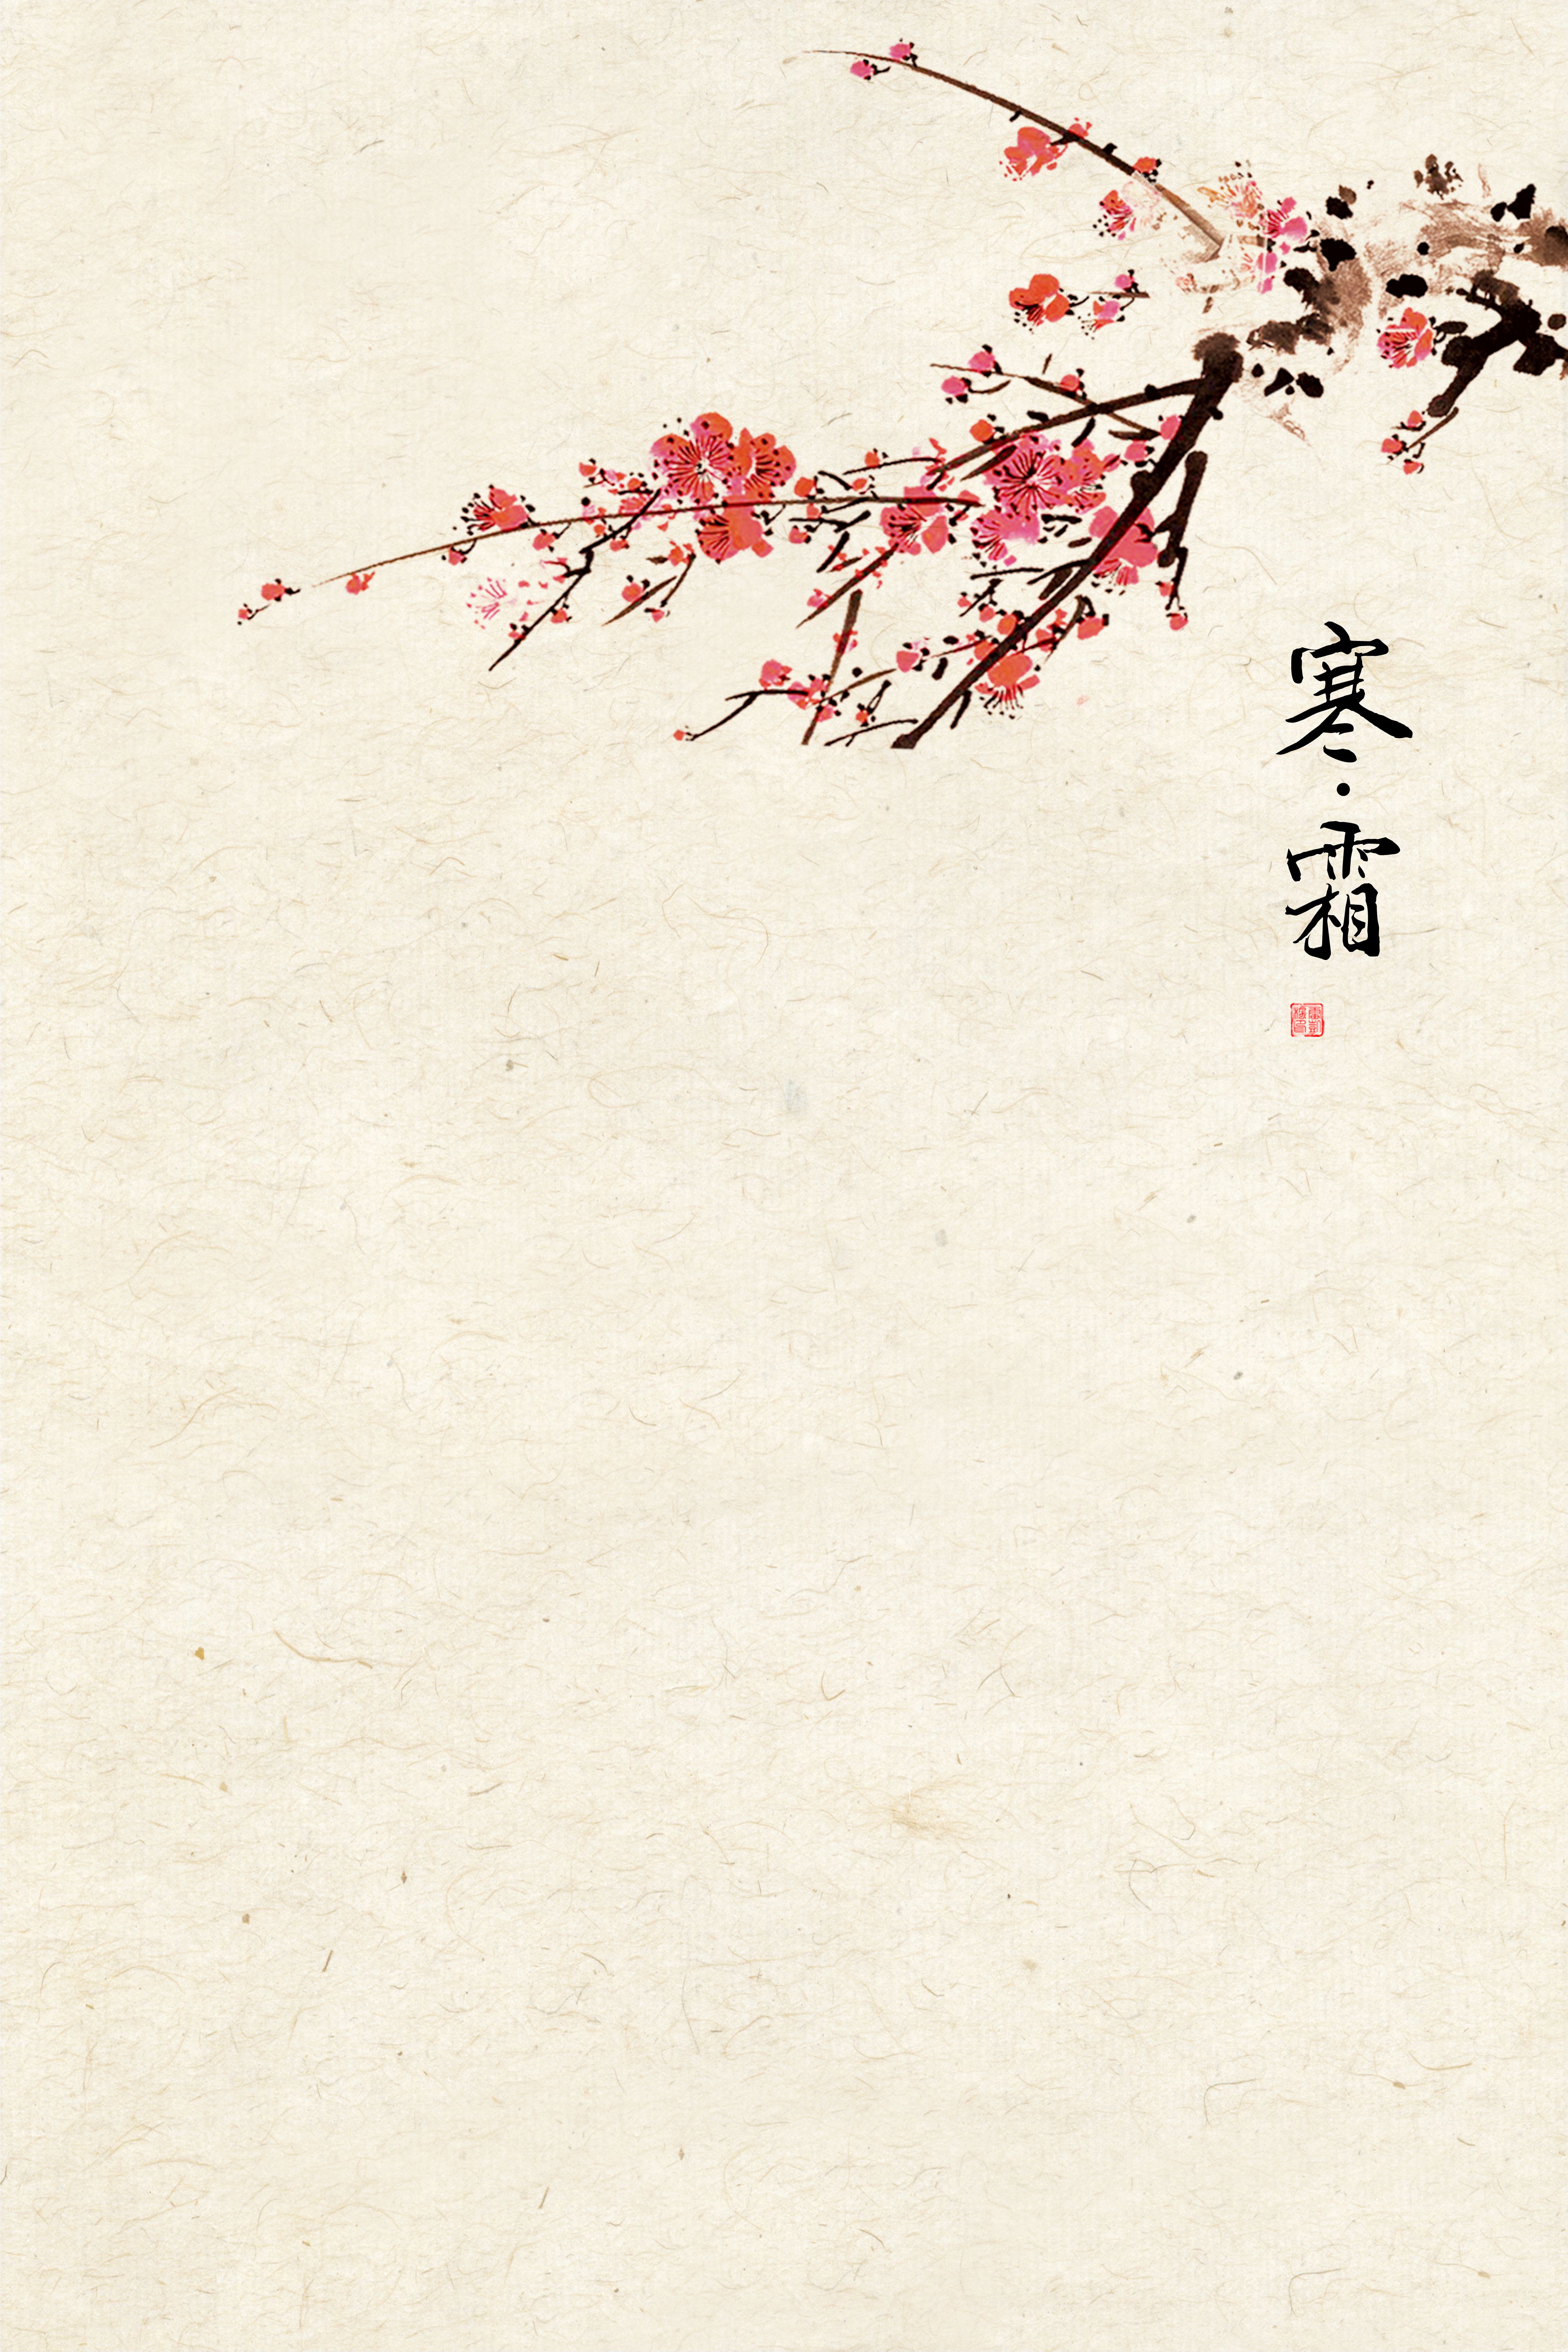 寒·霜